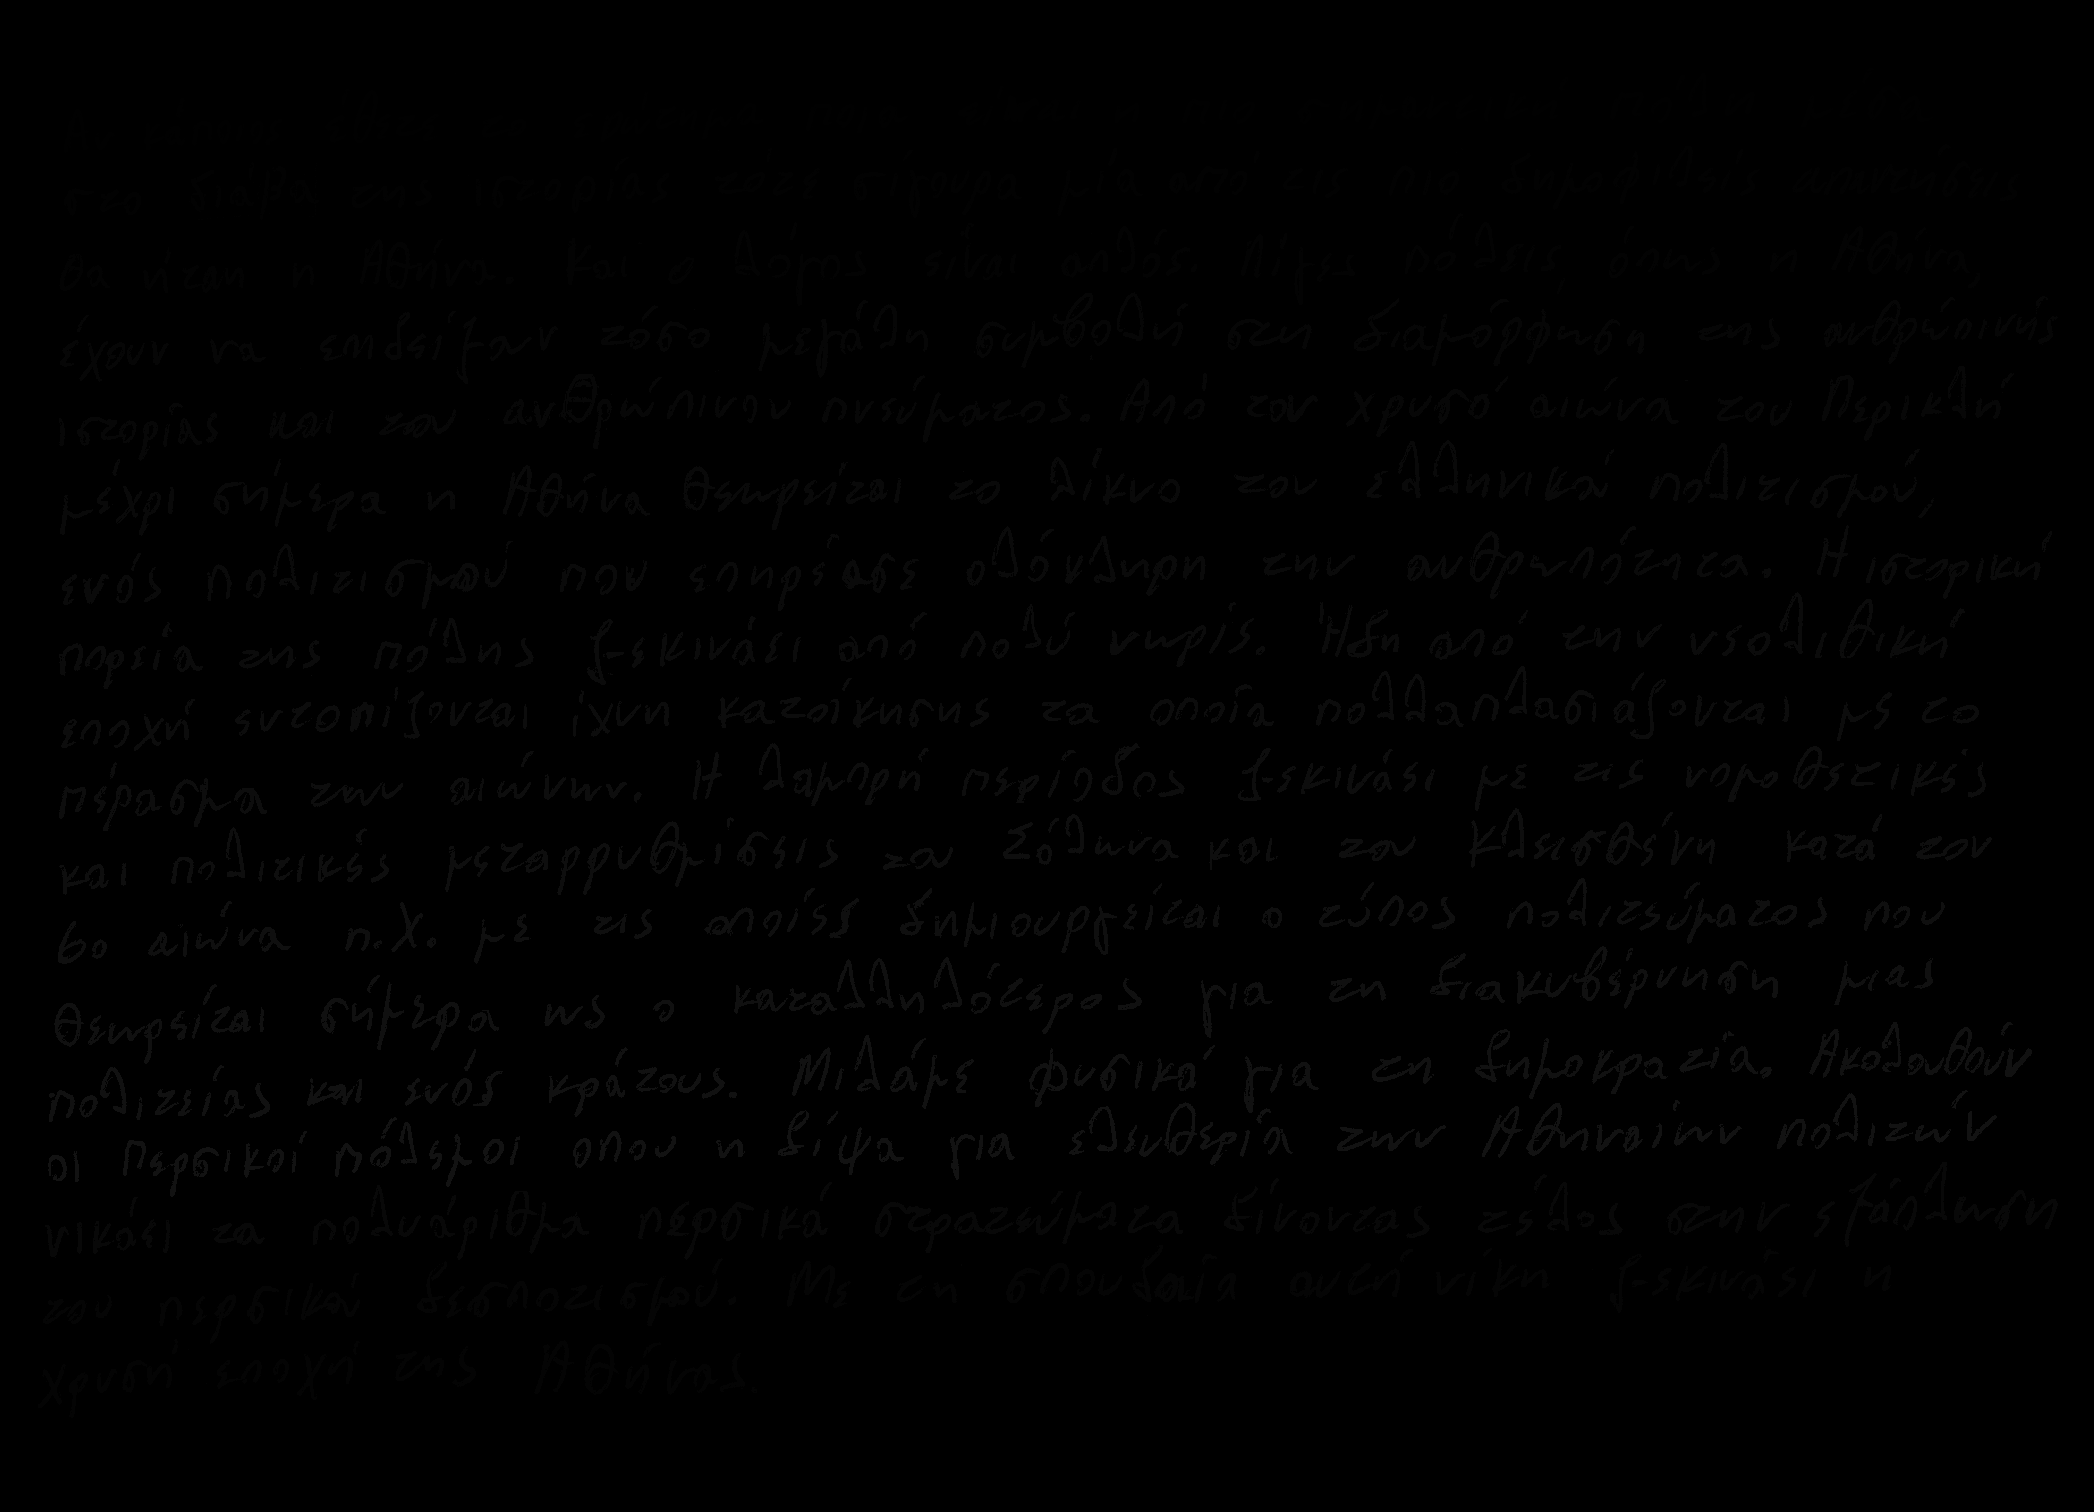 στο διάβα της ιστορίας τότε σίγουρα μία από τις πιο δημοφιλείς απαντήσεις
θα ήταν η Αθήνα. Και ο λόγος είναι απλός. Λίγες πόλεις όπως η Αθήνα,
έχουν να επιδείξουν τόσο μεγάλη συμβολή στη διαμόρφωση της ανθρώπινής
ιστορίας και του ανθρώπινου πνεύματος. Από τον χρυσό αιώνα του Περικλή
μέχρι σήμερα η Αθήνα θεωρείται το λίκνο του ελληνικού πολιτισμού,
ενός πολιτισμού που επηρέασε ολόκληρη την ανθρωπότητα. Η ιστορική
πορεία της πόλης ξεκινάει από πολύ νωρίς. Ήδη από την νεολιθική
εποχή εντοπίζονται ίχνη κατοίκησης τα οποία πολλαπλασιάζονται με το
πέρασμα των αιώνων. Η λαμπρή περίοδος ξεκινάει με τις νομοθετικές
και πολιτικές μεταρρυθμίσεις του Σόλωνα και του Κλεισθένη κατά τον
6ο αιώνα π.Χ. με τις οποίες δημιουργείται ο τύπος πολιτεύματος που
θεωρείται σήμερα ως ο καταλληλότερος για τη διακυβέρνηση μιας
πολιτείας και ενός κράτους. Μιλάμε φυσικά για τη δημοκρατία. Ακολουθούν
οι Περσικοί πόλεμοι οπου η δίψα για ελευθερία των Αθηναίων πολιτών
νικάει τα πολυάριθμα περσικά στρατεύματα δίνοντας τέλος στην εξάπλωση
του περσικού δεσποτισμού. Με τη σπουδαία αυτή νίκη ξεκινάει η
χρυσή εποχή της Αθήνας.